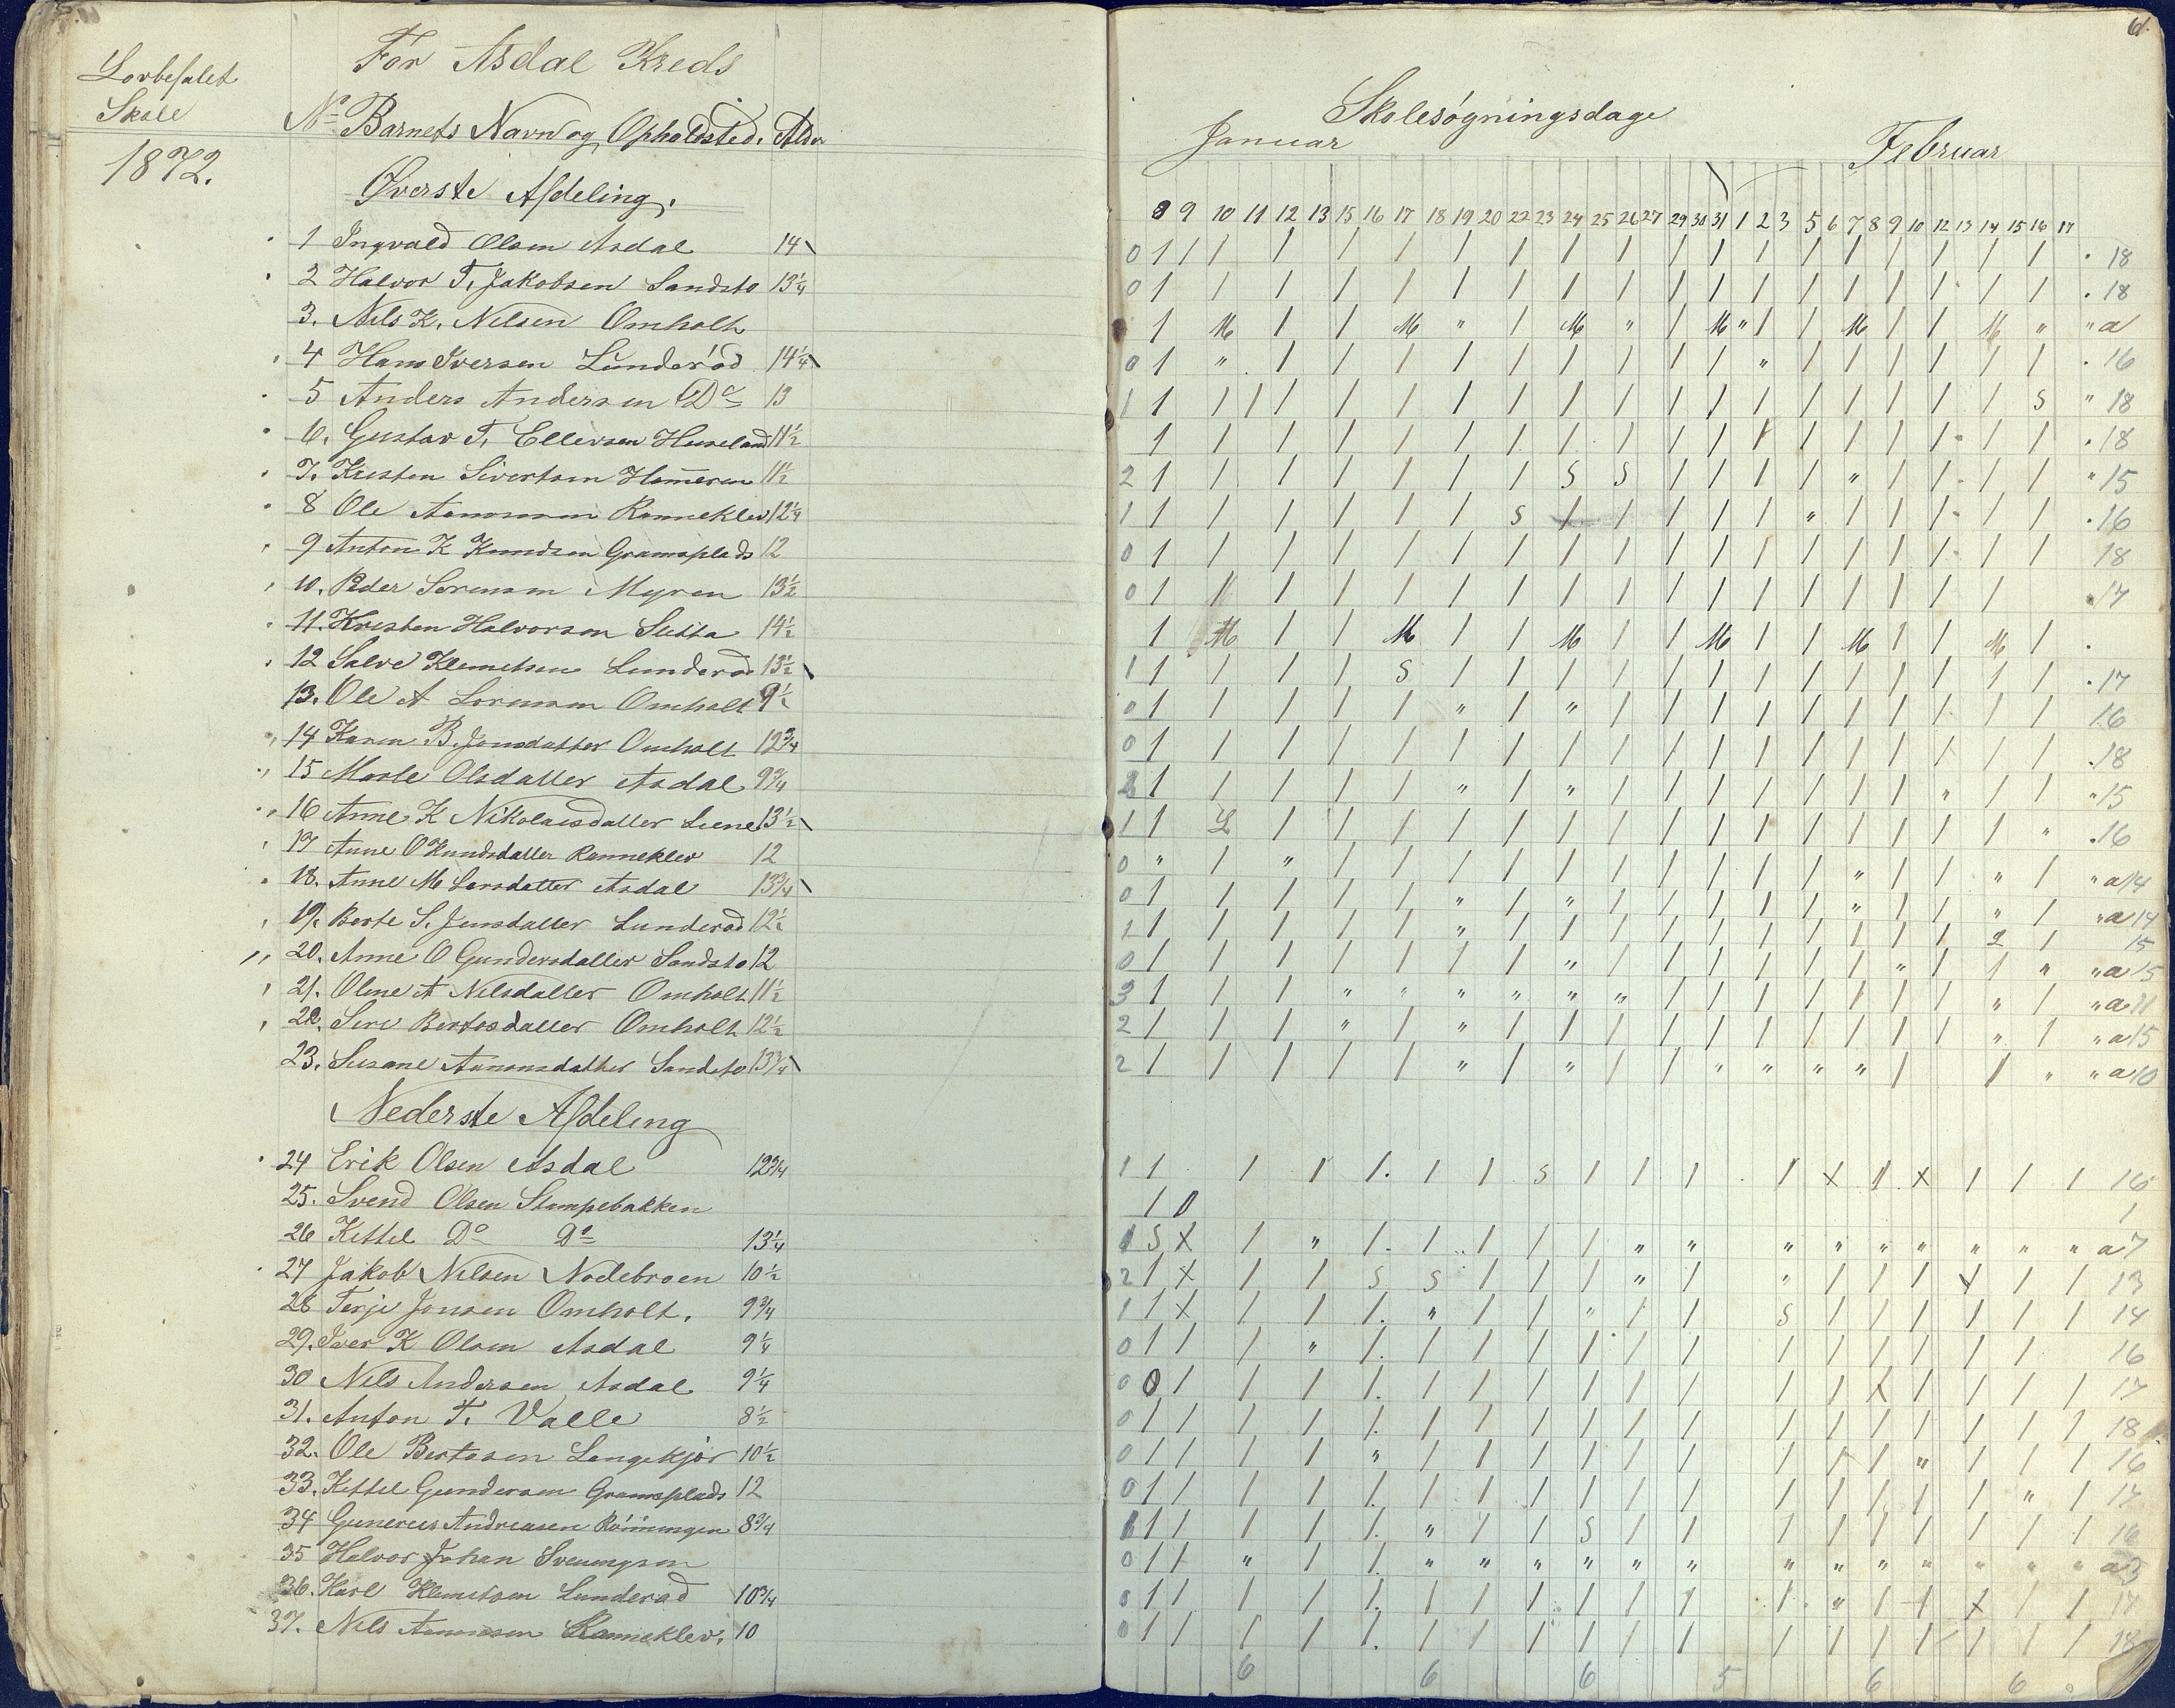 Lovbefalet
Skole
1872.
For Asdal Kreds
No Barnets Navn og Opholdsted. Alder
Øverste Afdeling.
1 Ingvald Olsen Asdal 14
2 Halvor T. Jakobsen Sandsto 13 1/4
3. Nils K. Nilsen Omholt
4 Hans Iversen Lunderød 14 1/4
5 Anders Andersen Do 13
6. Gustav T. Ellevsen Huseland 11 1/2
7. Kristen Sivertsen Hammeren 11 1/2
8 Ole Aanonsen Rannekleiv 12 1/4
9 Anton K Knudsen Gramsplads 12
10. Peder Sørensen Myren 13 1/2
11. Kristen Halvorsen Sutta 14 1/2
12 Salve Klemetsen Lunderød 13 1/2
13. Ole A Sørensen Omholt 9 1/2
14 Karen B. Jonsdatter Omholt 12 3/4
15 Olsdatter Asdal 9 3/4
16 Anne K Nikolaisdatter Liene 13 1/2
17 Anne O Knudsdatter Ranneklev 12
18. Anne M Larsdatter Asdal 13 3/4
19. Berte S. Jensdatter Lunderød 12 1/2
20. Anne O Gundersdatter Sandsto 12
21. Oline A Nilsdatter Omholt 11 1/2
22. Siri Bertosdatter Omholt 12 1/2
23. Susane Aanonsdatter Sandsto 13 3/4
Nederste Afdeling
24 Erik Olsen Asdal 12 3/4
25. Svend Olsen Stampebakken
26 Kittel Do Do 13 1/4
27 Jakob Nilsen Nødebroen 10 1/2
28 Terje Jonsen Omholt. 9 3/4
29. Iver K Olsen Asdal 9 1/4
30 Nils Andersen Asdal 9 1/4
31. Anton T. Valle 8 1/2
32. Ole Bertosen Langekjør 10 1/2
33. Kittel Gundersen Gramsplads 12
34 Gunerius Andreasen Rønningen 8 3/4
35 Halvor Johan Sveningsen
36. Karl Klemetsen Lunderød 10 3/4
37. Nils Aanonsen Ranneklev. 10
61.
Skolesøgningsdage
Januar Februar
8 9 10 11 12 13 15 16 17 18 19 20 22 23 24 25 26 27 29 30 31 1 2 3 5 6 7 8 9 10 12 13 14 15 16 17
0 1 / / / / / / / / / / / / / / / / / / / . 18
0 1 / / / / / / / / / / / / / / / / / / . 18
1 M / / M " / M " / M " / / M / / M " " a
0 1 " / / / / / / / / / " / / / / / / . 16
1 1 / / / / / / / / / / / / / / / / / / S " 18
1 / / / / / / / / / / / / / / / / / . 18
2 1 / / / / / / S S / / / / " / / / / " 15
1 1 / / / / / S / / / / / " / / / / / . 16
0 1 / / / / / / / / / / / / / / / / / 18
0 1 / / / / / / / / / / / / / / / / . 17
1 M / / M / / M / / M / / M / / M / .
1 1 / / / S / / / / / / / / / / / / / . 17
0 1 / / / / " / " / / / / / / / / / / 16
0 1 / / / / / / / / / / / / / / / / / . 18
2 1 / / / / " / " / / / / / / / " / / " 15
1 1 L / / / / / / / / / / / / / / / " . 16
0 " / " / / / / / / / / / / " / / " / " a 14
0 1 / / / / " / " / / / / / " / / " / " a 14
1 1 / / / / " / / / / / / / / / / 2 / 15
0 1 / / / / / / " / / / / / / " / / " " a 15
3 1 / / " " " " " " / / / / / / / " / " a 11
2 1 / / " / " / / / / / / / / / / " / " a 15
2 1 / / / / " / " / / " " " " / / " " a 10
1 1 / / /. / / S / / / / X / X / / / 16
1 0 1
1 S X / " /. / / / / " " " " " " " " " a 7
2 1 X / / S S / / / " / " / / / X / / 13
1 1 X / / /. " / / " / / S / / / / / / 14
0 1 / / " /. / / / / / / / / / / / / 16
0 0 / / / /. / / / / / / / / X / / / / 17
0 1 / / / /. / / / / / / / / / / / / / 18
0 1 / / / " / / / / / / / / / " / / / 16
0 1 / / / /. / / / / / / / / / / / " / 17
1 1 / / / /. " / / S / / / / / / / / / 16
0 1 / " / /. " " " " " " " " " " " " " a 3
0 1 / / / /. / / / / / / / " / / X / / 17
0 1 / / / /. / / / / / / / / / / / / / 18
6 6 6 5 6 6